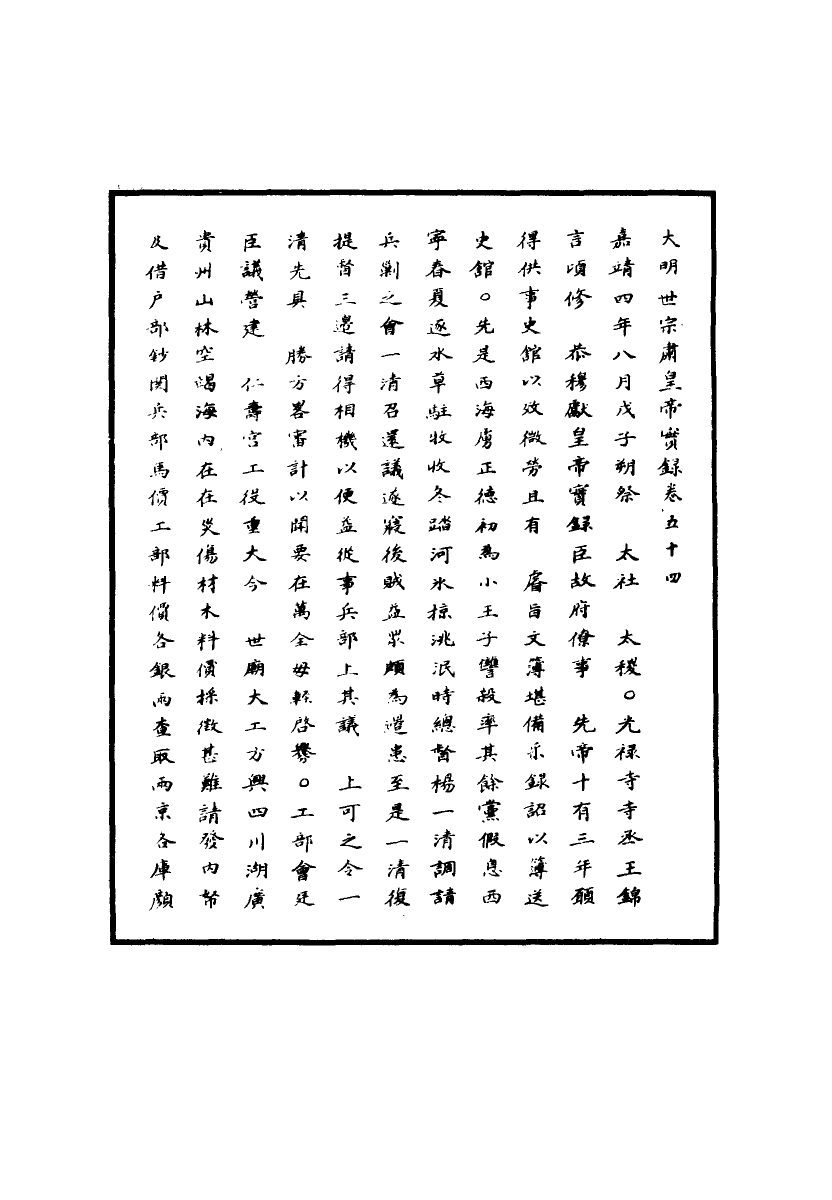 大明世宗肅皇帝實錄卷五十四
嘉靖四年八月戊子朔祭　太社　太稷○光祿寺寺丞王錦
言頃修　恭穆獻皇帝實錄臣故府僚事　先帝十有三年願
得供事史館以效微勞且有　睿旨文簿堪備采錄詔以簿送
史館○先是西海虜正德初為小王子讐殺率其餘黨假息西
寧春夏逐水草駐收收冬踏河氷掠洮泯時總督楊一清調請
兵剿之會一清召還議遂寢後賊益眾頗為邉患至是一清復
提督三邉請得相機以便益從事兵部上其議　上可之令一
清先具　勝方畧審計以聞要在萬全毋輕啓釁○工部會廷
臣議營建　仁壽宮工役重大今　世廟大工方興四川湖廣
貴州山林空竭海內在在災傷材木料價採徵甚難請發內帑
及借户部鈔関兵部馬價工部料價各銀兩查取兩京各庫顏